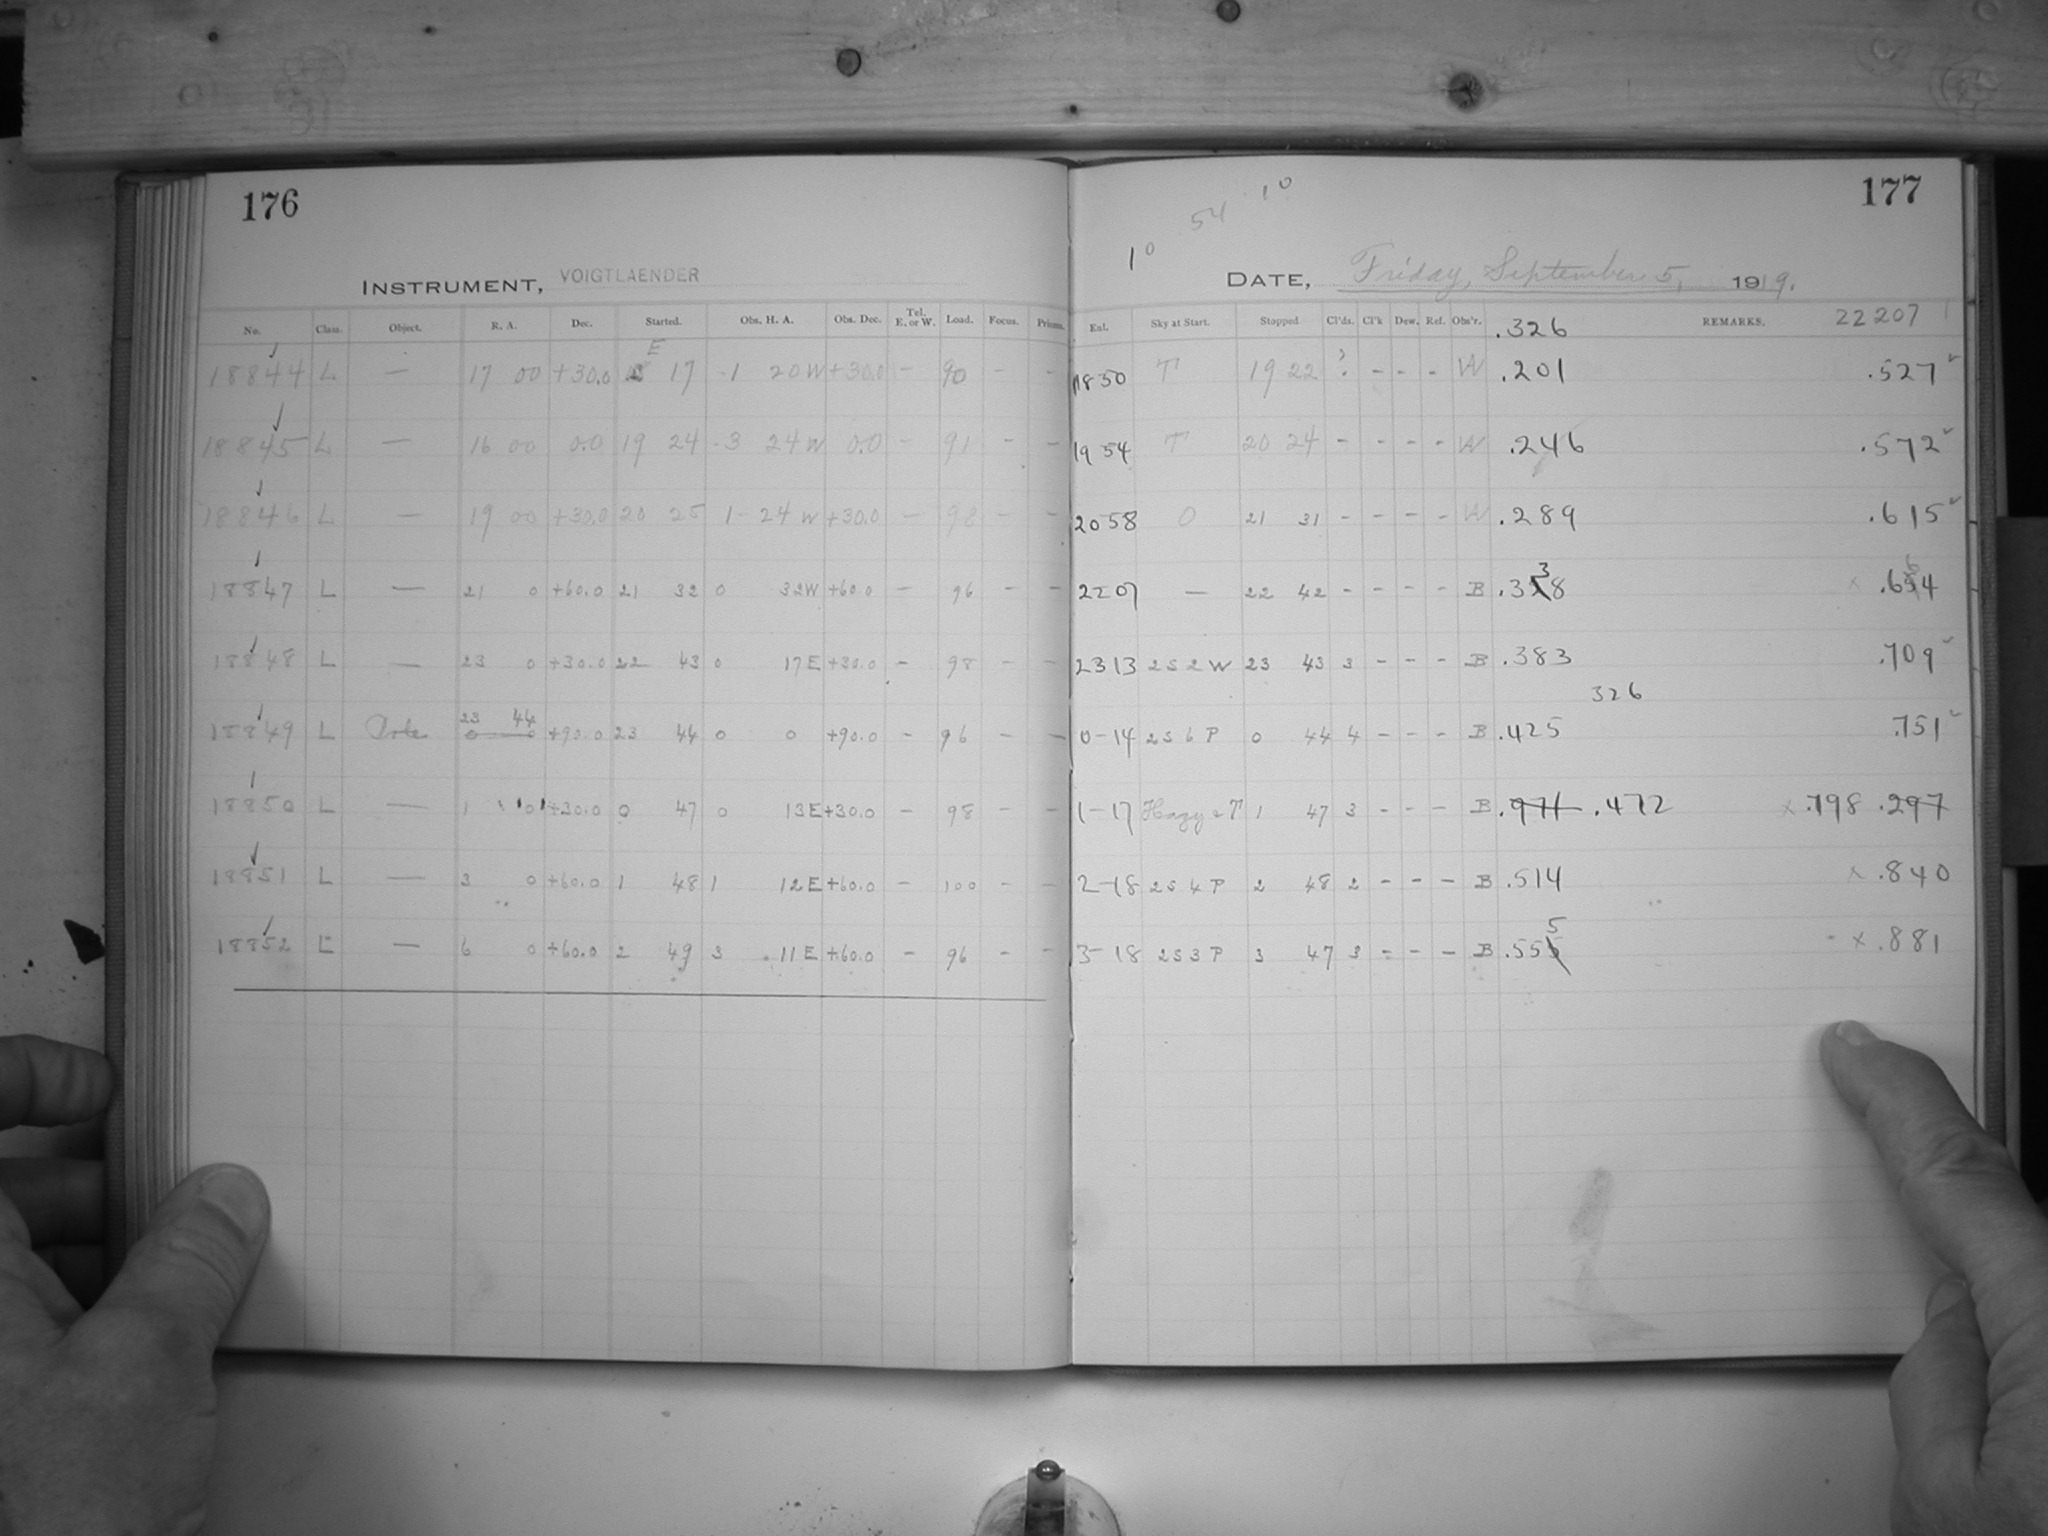 176
INSTRUMENT, VOIGTLAENDER
No. Class. Object. R. A. Dec. Started. Obs. H. A. Obs. Dec. Tel. E. or W. Load. Focus. Prisms.
18844 L — 17 00 +30.0 E 17 -1 20W +30.0 - 90 - -
18845 L — 16 00 0.0 19 24 -3 24W 0.0 - 91 - -
18846 L — 19 00 +30.0 20 25 1- 24W +30.0 - 98 - -
18847 L — 21 0 +60.0 21 32 0 32W +60.0 - 96 - -
18848 L — 23 0 +30.0 22 43 0 17E +30.0 - 98 - -
18849 L Pole 23 44 0 0 +90.0 23 44 0 0 +90.0 - 96 - -
18850 L — 1 0 +30.0 0 47 0 13E +30.0 - 98 - -
18851 L — 3 0 +60.0 1 48 1 12E +60.0 - 100 - -
18852 L — 6 0 +60.0 2 49 3 11E +60.0 - 96 - -
177
54 10
10
DATE, Friday, September 5, 1919.
Enl. Sky at Start. Stopped Cl'ds. Cl'k Dew. Ref. Obs'r. .326 REMARKS. 22207
1850 T 19 22 - - - W .201 .527
1954 T 20 24 - - - - W .246 .572
2058 0 21 31 - - - - W .289 .615
2207 — 22 42 - - - - B .338 × .664
2313 2S2W 23 43 3 - - - B .383 .709
326
0-14 2S6P 0 44 4 - - - B .425 .751
1-17 Hazy & T 1 47 3 - - - B .971 .472 × .798 .297
2-18 2S4P 2 48 2 - - - B .514 × .840
3-18 2S3P 3 47 3 - - - B .555 × .881